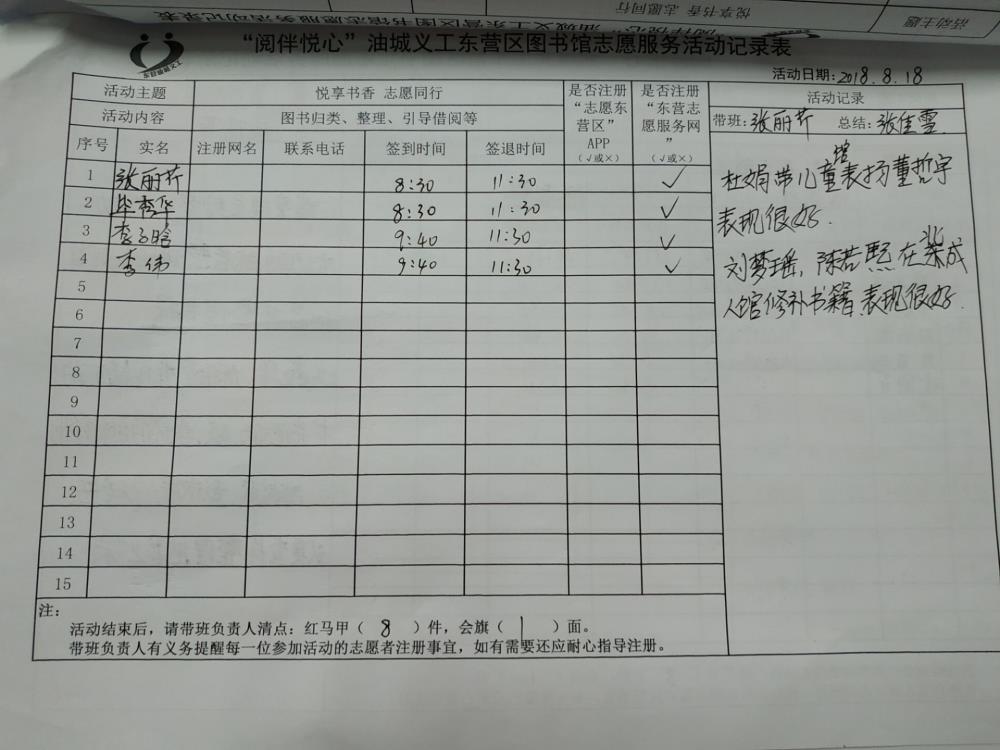 活动主题
悦享书香 志愿同行
“阅伴悦心”油城义工东营区图书馆志愿服务活动记录表
活动日期:2018.8.18
活动主题 悦享书香 志愿同行
活动内容 图书归类、整理、引导借阅等
是否注册“志愿东营区”APP（√或×）
是否注册“东营志愿服务网”（√或×）
活动记录
带班:张丽芹 总结:张佳雪
序号 实名 注册网名 联系电话 签到时间 签退时间
1 张丽芹 8:30 11:30 √
2 毕秀华 8:30 11:30 √
3 李子晗 9:40 11:30 √
4 李伟 9:40 11:30 √
5
6
7
8
9
10
11
12
13
14
15
杜娟带儿童馆表扬董哲宇
表现很好.
刘梦瑶,陈若熙在北成
人馆修补书籍,表现很好.
注:
活动结束后，请带班负责人清点：红马甲（ 8 ）件，会旗（ 1 ）面。
带班负责人有义务提醒每一位参加活动的志愿者注册事宜，如有需要还应耐心指导注册。